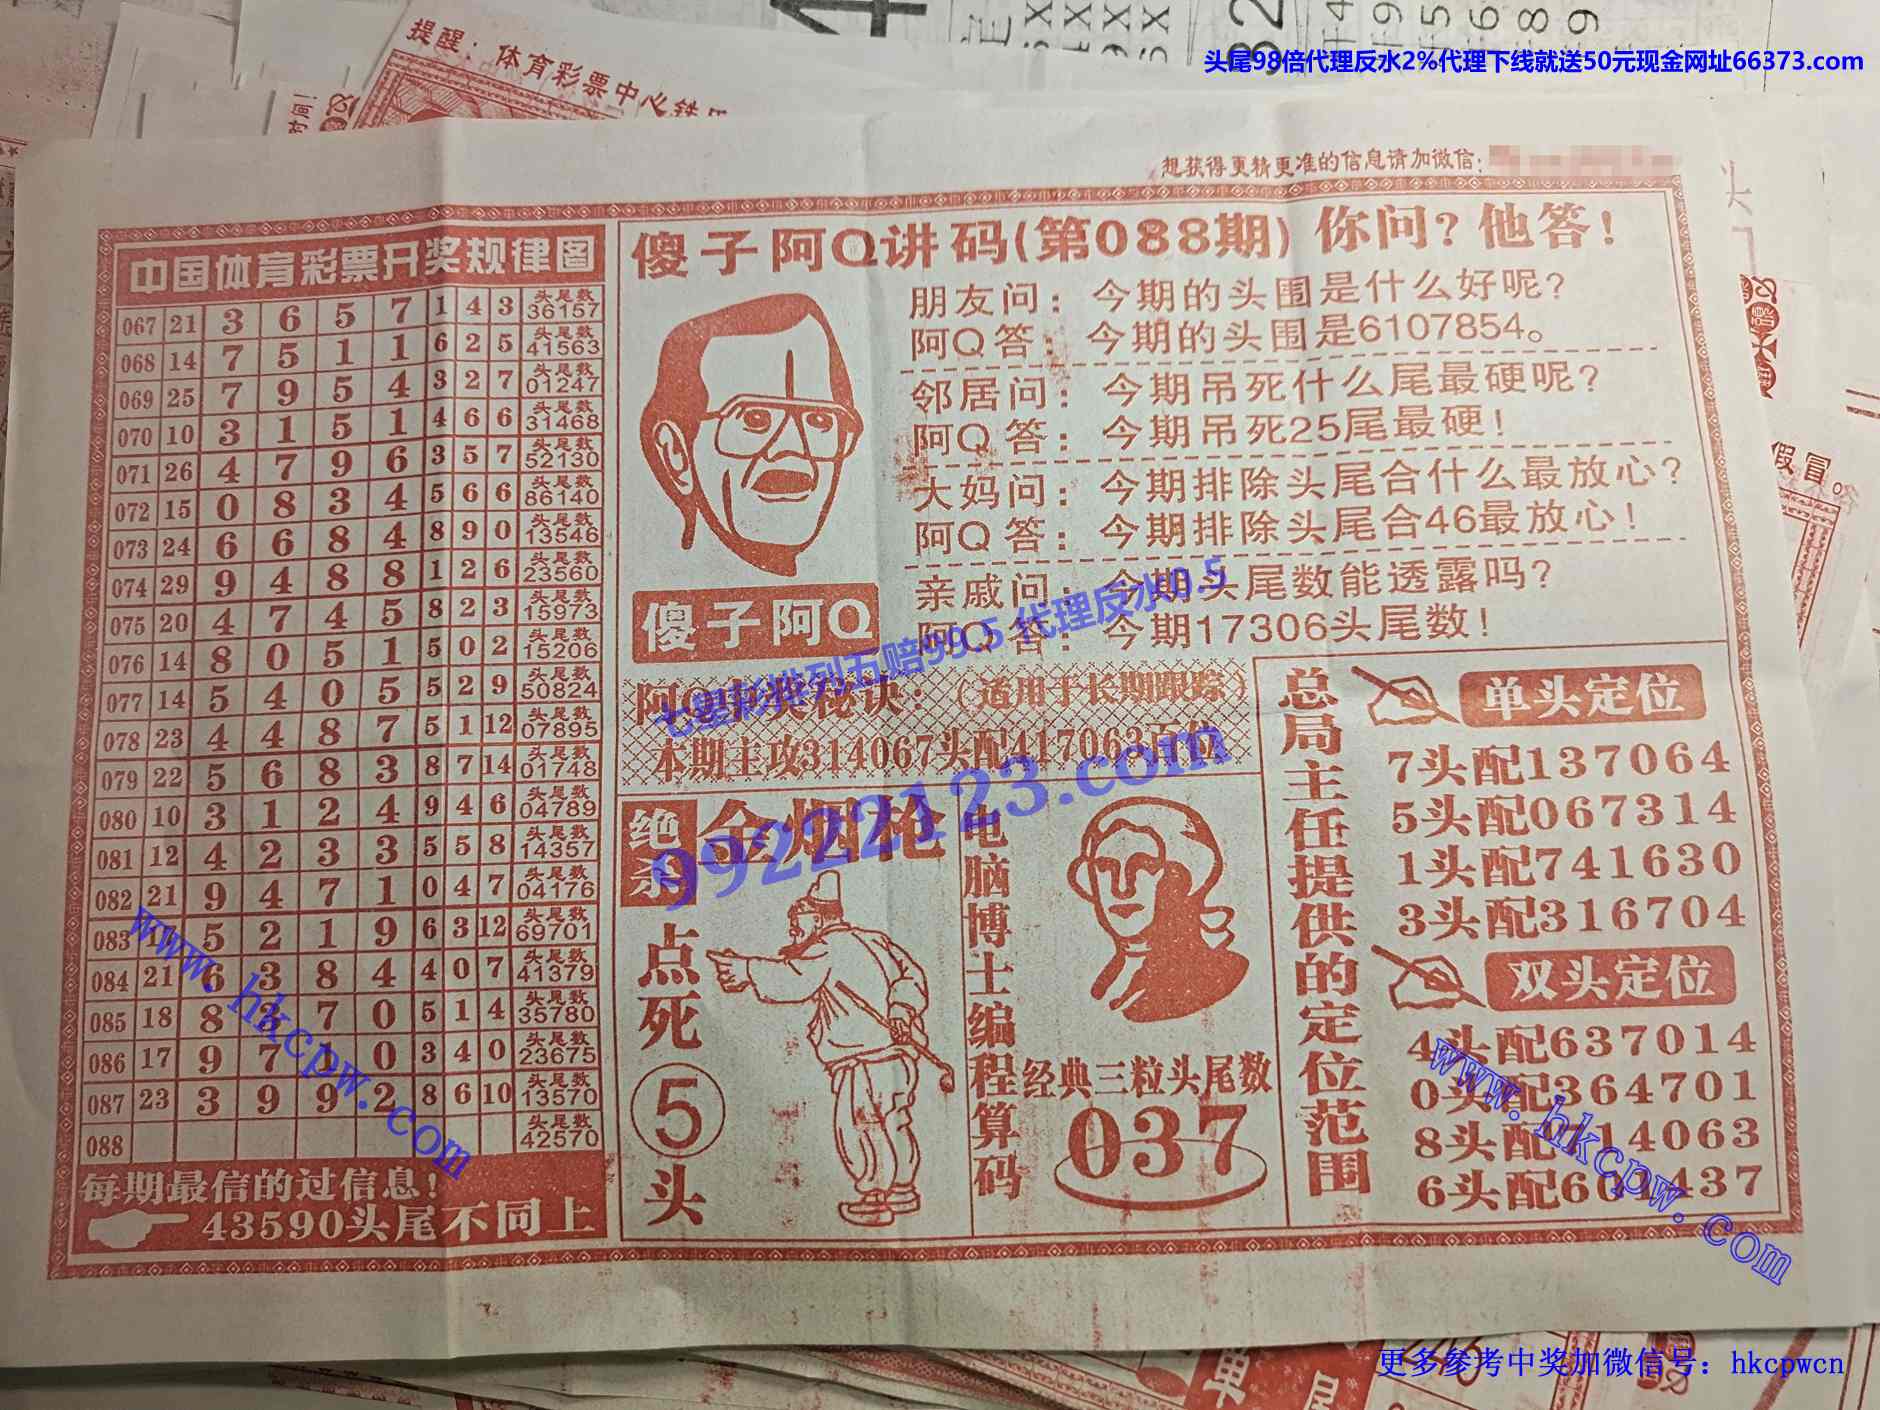 提醒：体育彩票中心铁
头尾98倍代理反水2%代理下线就送50元现金网址66373.com
想获得更精更准的信息请加微信：
中国体育彩票开奖规律图
067 21 3 6 5 7 1 4 3 头尾数 36157
068 14 7 5 1 1 6 2 5 头尾数 41563
069 25 7 9 5 4 3 2 7 头尾数 01247
070 10 3 1 5 1 4 6 6 头尾数 31468
071 26 4 7 9 6 3 5 7 头尾数 52130
072 15 0 8 3 4 5 6 6 头尾数 86140
073 24 6 6 8 4 8 9 0 头尾数 13546
074 29 9 4 8 8 1 2 6 头尾数 23560
075 20 4 7 4 5 8 2 3 头尾数 15973
076 14 8 0 5 1 5 0 2 头尾数 15206
077 14 5 4 0 5 5 2 9 头尾数 50824
078 23 4 4 8 7 5 1 12 头尾数 07895
079 22 5 6 8 3 8 7 14 头尾数 01748
080 10 3 1 2 4 9 4 6 头尾数 04789
081 12 4 2 3 3 5 5 8 头尾数 14357
082 21 9 4 7 1 0 4 7 头尾数 04176
083 5 2 1 9 6 3 12 头尾数 69701
084 21 6 3 8 4 4 0 7 头尾数 41379
085 18 8 3 7 0 5 1 4 头尾数 35780
086 17 9 7 1 0 3 4 0 头尾数 23675
087 23 3 9 9 2 8 6 10 头尾数 13570
088 头尾数 42570
每期最信的过信息！
43590头尾不同上
傻子阿Q讲码(第088期) 你问？他答！
朋友问：今期的头围是什么好呢？
阿Q答：今期的头围是6107854。
邻居问：今期吊死什么尾最硬呢？
阿Q答：今期吊死25尾最硬！
大妈问：今期排除头尾合什么最放心？
阿Q答：今期排除头尾合46最放心！
亲戚问：今期头尾数能透露吗？
阿Q答：今期17306头尾数！
傻子阿Q
阿Q中奖秘诀：（适用于长期跟踪）
本期主攻314067头配417063百位
七星彩排列五赔99.5 代理反水0.5
99222123.com
绝杀
金烟枪
点死⑤头
电脑博士编程算码
经典三粒头尾数
037
总局主任提供的定位范围
单头定位
7头配137064
5头配067314
1头配741630
3头配316704
双头定位
4头配637014
0头配364701
8头配014063
6头配601437
www.hkcpw.com
www.hkcpw.com
假冒。
更多参考中奖加微信号：hkcpwcn